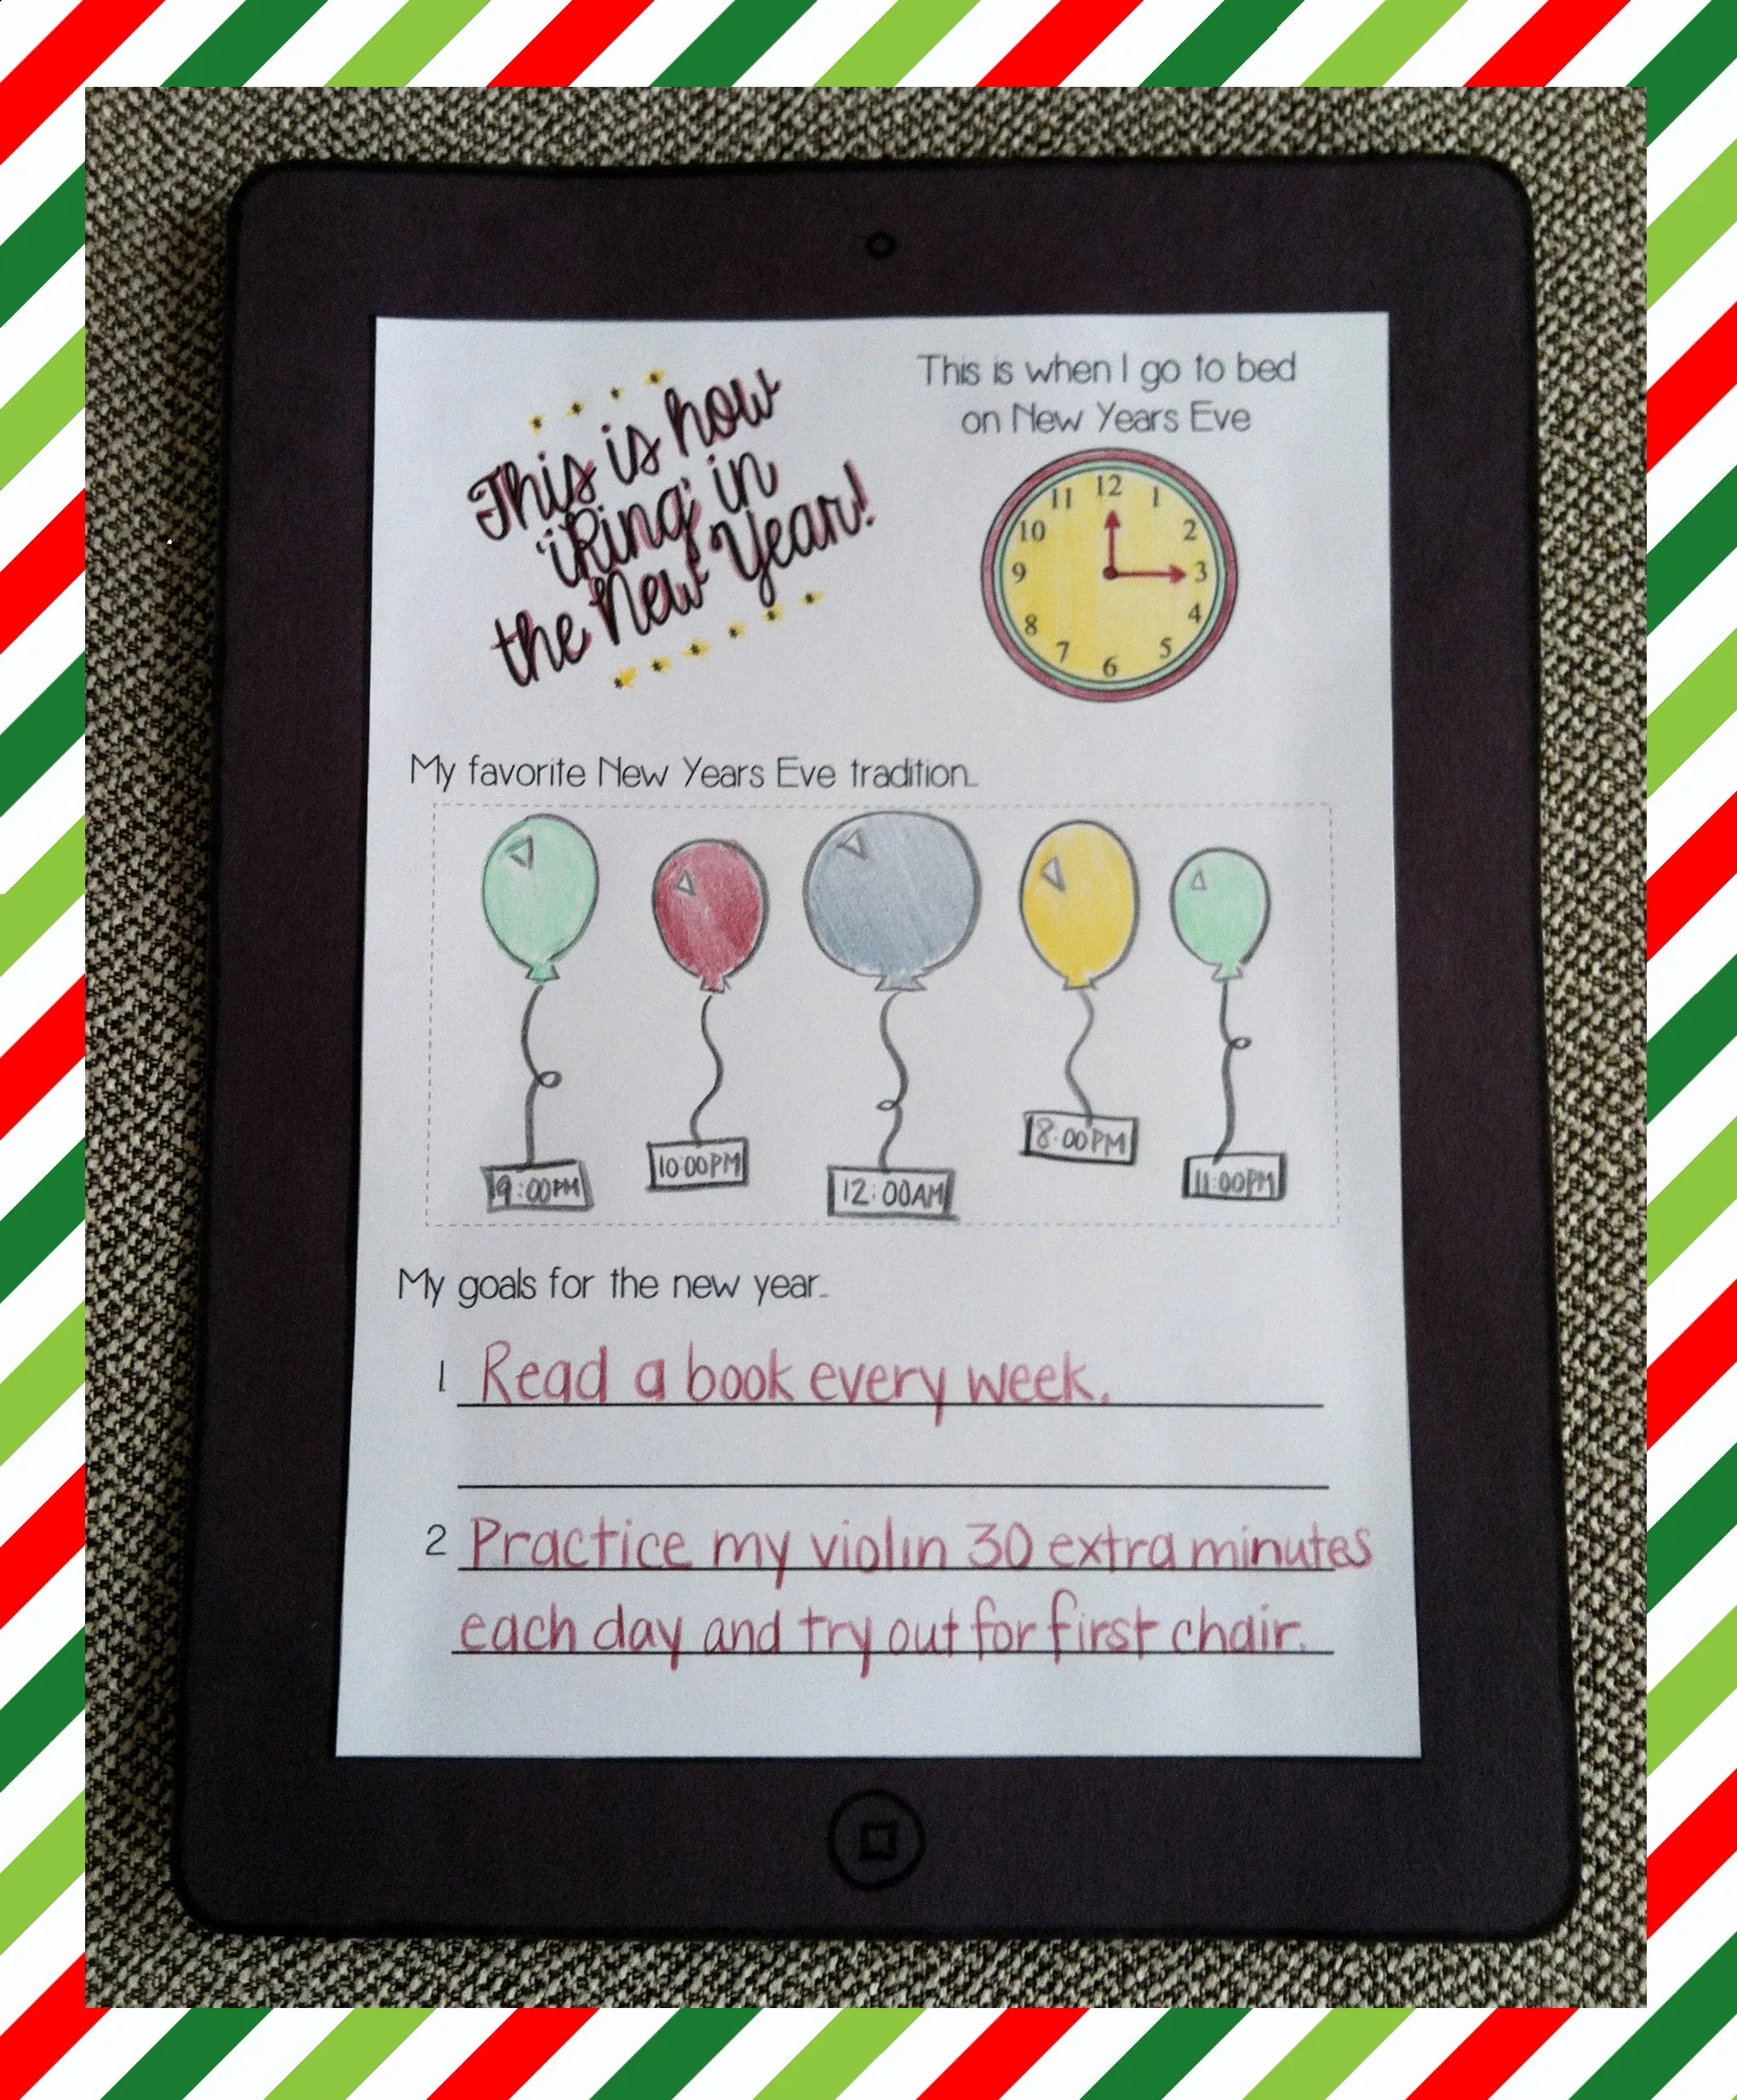 This is how
'iRing' in
the New Year!
This is when I go to bed
on New Years Eve
12
1
2
3
4
5
6
7
8
9
10
11
My favorite New Years Eve tradition...
9:00PM
10:00PM
12:00AM
8:00PM
11:00PM
My goals for the new year...
1 Read a book every week.
2 Practice my violin 30 extra minutes
each day and try out for first chair.